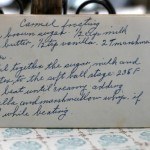 Caramel frosting
brown sugar 1/2 cup milk
butter, 1/2 tsp vanilla. 2 T marshmal
together the sugar, milk and
to the soft ball stage 238 F
beat until creamy adding
and marshmallow whip. if
while beating